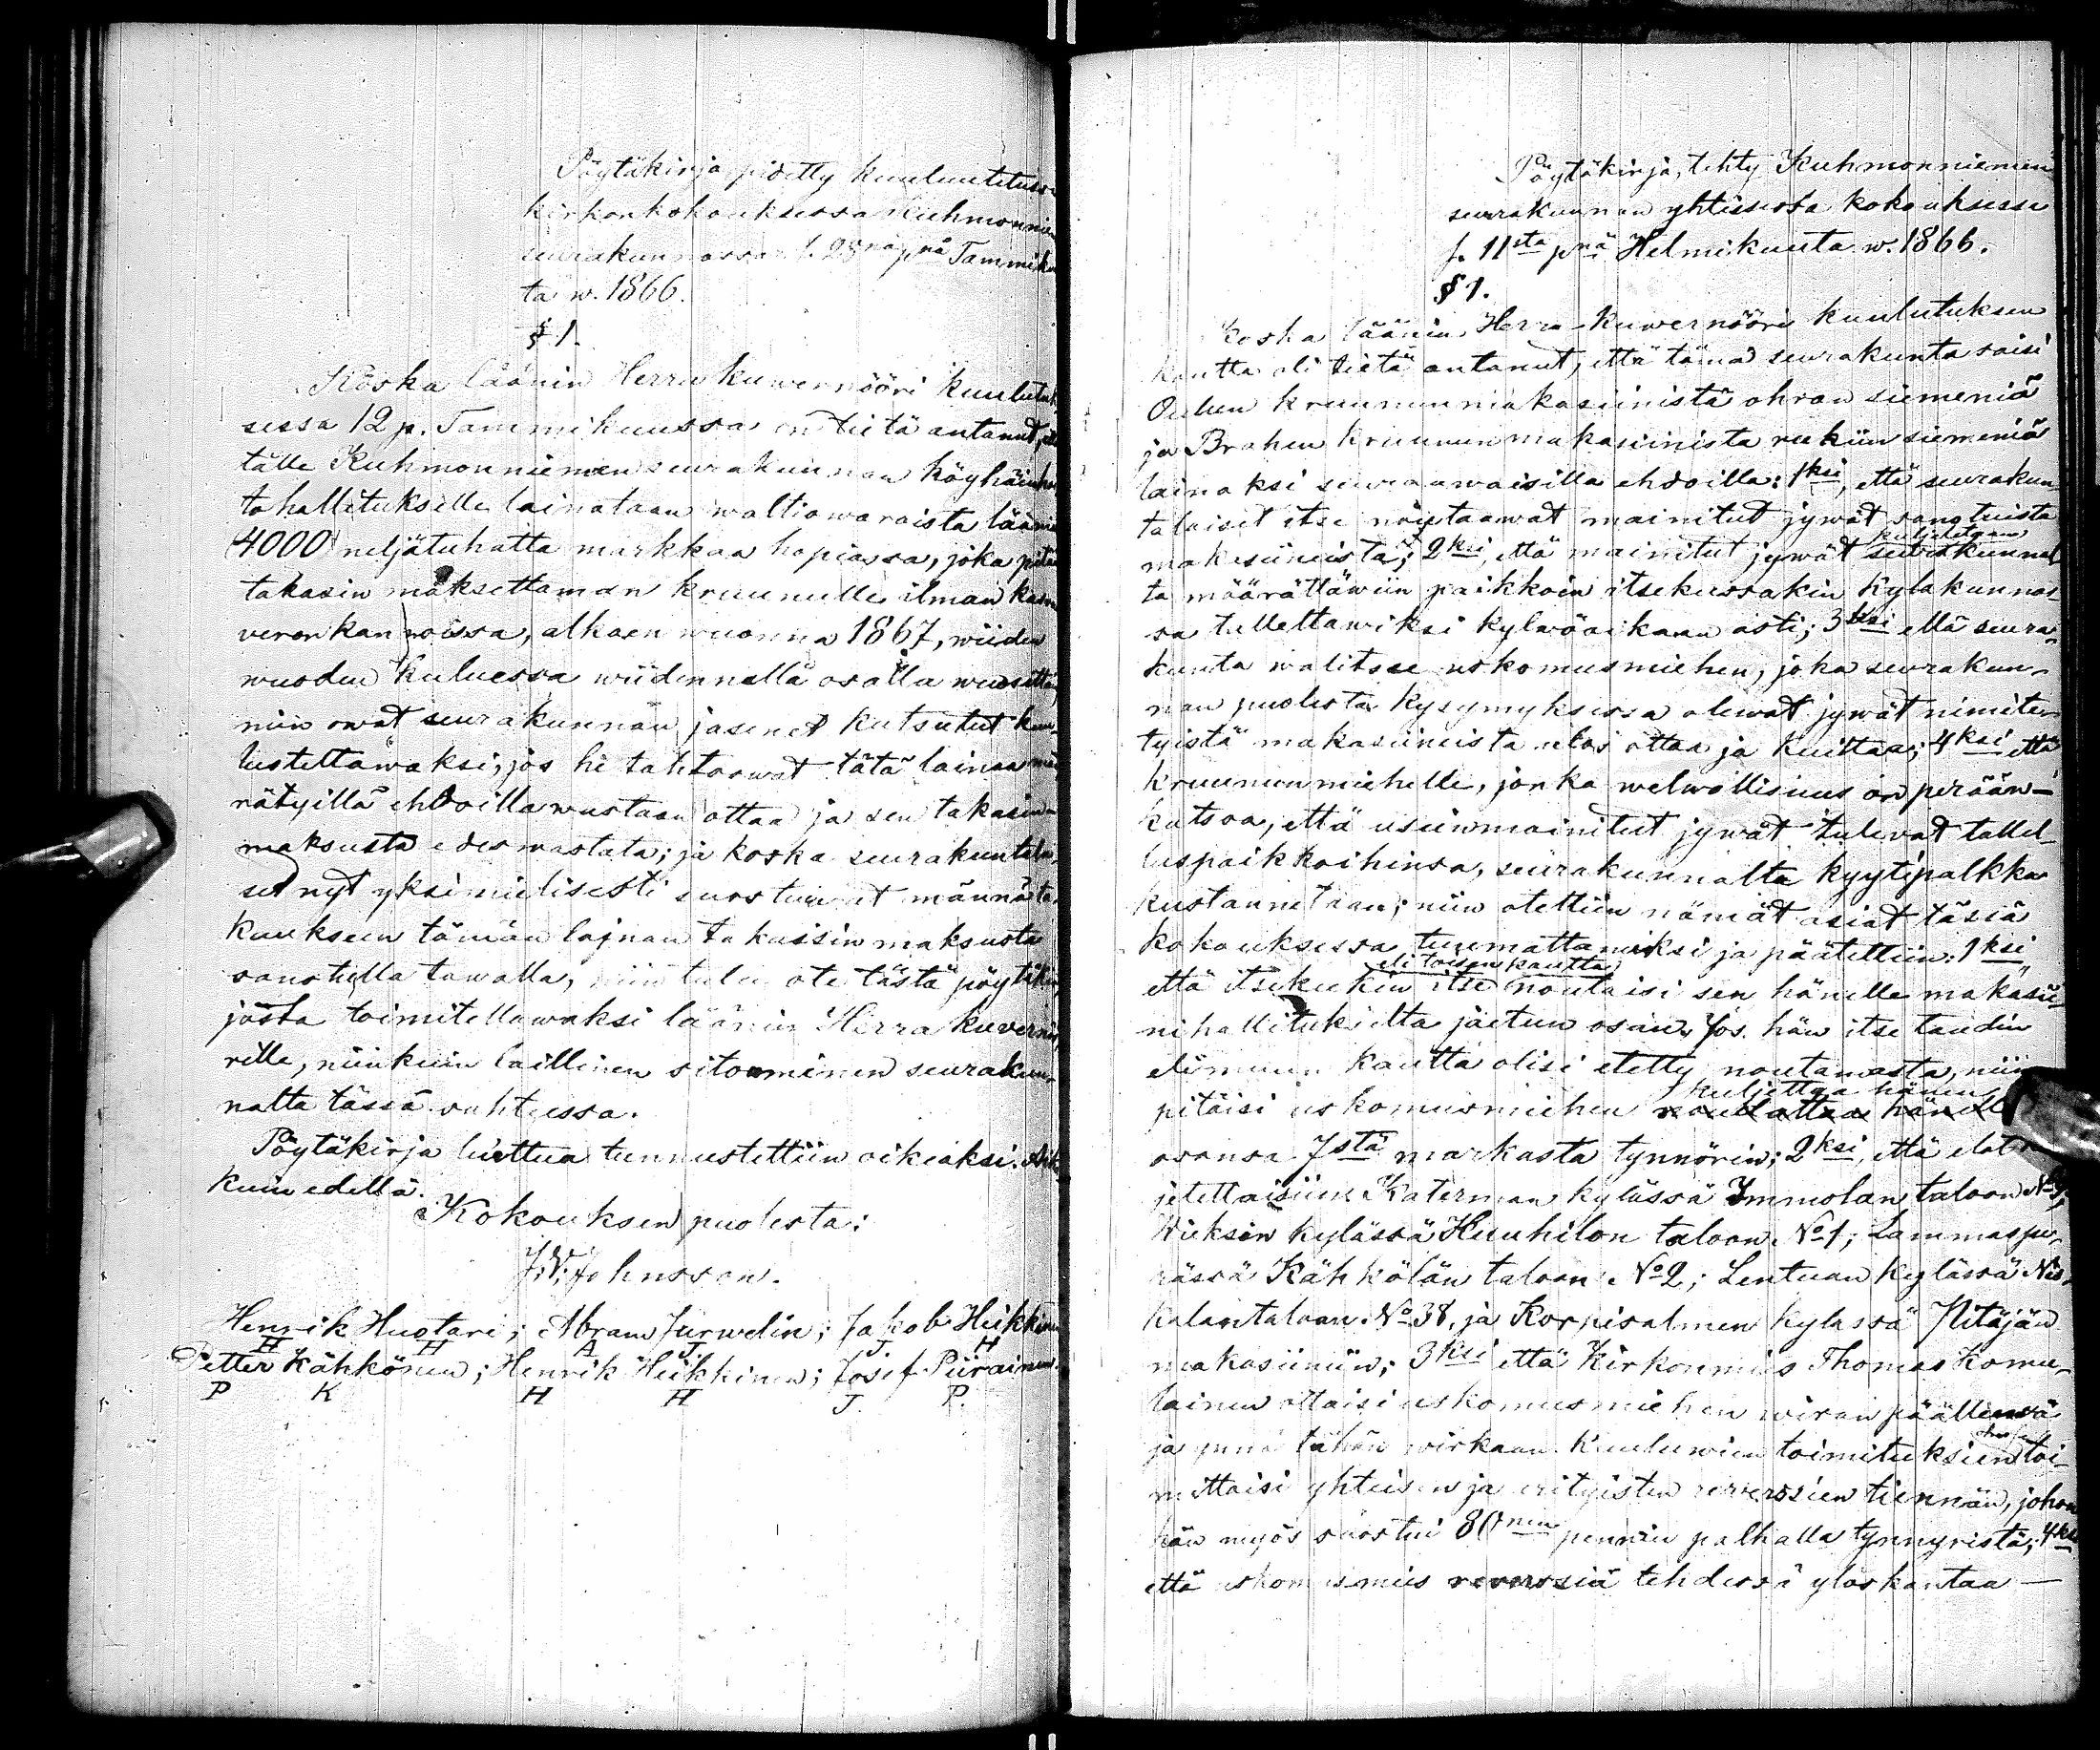 Pöytäkirja pidetty kuulutetussa
kirkonkokouksessa Kuhmonnie
seurakunnassa s. 28nä pnä Tammiku
ta w. 1866.
§ 1.
Koska läänin Herra kuwernööri kuulutuk
sessa 12 p. Tammikuussa on tietä antanut, että
tälle Kuhmonniemen seurakunnan köyhäinhoi
to hallitukselle lainataan waltiowaraista lääni
(4000) neljätuhatta markkaa hopiassa, joka pitää
takasin maksettaman kruunulle ilman kaswu
veronkannoissa, alkaen wuonna 1867, wiiden
wuoden kuluessa wiidennellä osalla wuosittain
niin owat seurakunnan jäsenet kutsutut kuu
lusteltawaksi, jos he tahtoowat tätä lainaa mää
rätyillä ehdoilla wastaan ottaa ja sen takasin-
maksusta edeswastata; ja koska seurakuntalai
set nyt yksimielisesti suostuiwat männä ta
kaukseen tämän lajnan takaisin maksusta
sanotulla tawalla, niin tulee ote tästä pöytäkir
jasta toimitettawaksi läänin Herra kuvernöö
rille, niinkuin laillinen sitouminen seurakun
nalta tässä suhteessa.
Pöytäkirja luettua tunnustettiin oikiaksi. Aika
kuin edellä.
Kokouksen puolesta:
J. W. Johnsson.
Henrik Huotari; Abram Jurwelin; Jakob Heikkinen
H H A J J H
Petter Kähkönen; Henrik Heikkinen; Josef Piirainen.
P K H H J. P.
Pöytäkirja, tehty Kuhmonniemen
seurakunnan yhtisessä kokouksessa
s. 11sta pnä Helmikuuta w. 1866.
§ 1.
Koska läänin Herra-kuwernööri kuulutuksen
kautta oli tietä antanut, että tämä seurakunta saisi
Oulun kruununmakasiinista ohran siemeniä
ja Brahen kruunun makasiinista rukiin siemeniä
lainaksi seuraawaisilla ehdoilla: 1ksi, että seurakun
talaiset itse noutaawat mainitut jywät sanotuista
makasiineista; 2ksi, että mainitut jywät seurakunnal
kuljetetaan
ta määrättäwiin paikkoin itsekussakin kyläkunnas
sa talleltawiksi kylwöaikaan asti; 3ksi että seura-
kunta walitsee uskomusmiehen, joka seurakun-
nan puolesta kysymyksessä olewat jywät nimite-
tyistä makasiineista ulos ottaa ja kuittaa; 4ksi että
kruununmiehelle, jonka welwollisuus on perään-
katsoa, että useinmainitut jywät tulewat tallel-
luspaikkoihinsa, seurakunnalta kyytipalkka
kustannetaan; niin otettiin nämät asiat täsiä
kokouksessa tuumattawiksi ja päätettiin: 1ksi
eli toisen kautta
että itsekukin itse noutaisi sen hänelle makasii
nihallitukselta jäetun osan. Jos hän itse taudin
eli muun kautta olisi etetty noutamasta, niin
kuljettaa hänen
pitäisi uskomusmiehen noudattaa hänelle
osansa 7stä markasta tynnörin; 2ksi, että elot
jätettäisiin Katerman kylässä Immolan taloon No
Wieksin kylässä Huuhilon taloon No 1; Lammaspe-
rässä Kähkölän taloon No 2; Lentuan kylässä Nis-
kalan taloon No 38, ja Korpisalmen kylässä Pitäjän
makasiiniin; 3ksi että Kirkonmies Thomas Komu-
lainen ottaisi uskomusmiehen wiran päällensä
ja ynnä tähän wirkaan kuuluwien toimituksien toi-
mittaisi yhteisen ja erityisten reverssien tiennän, johon
hän myös suostui 80nen pennin palkalla tynnyristä; 4ksi
että uskomusmies reverssiä tehdessä yloskantaa —